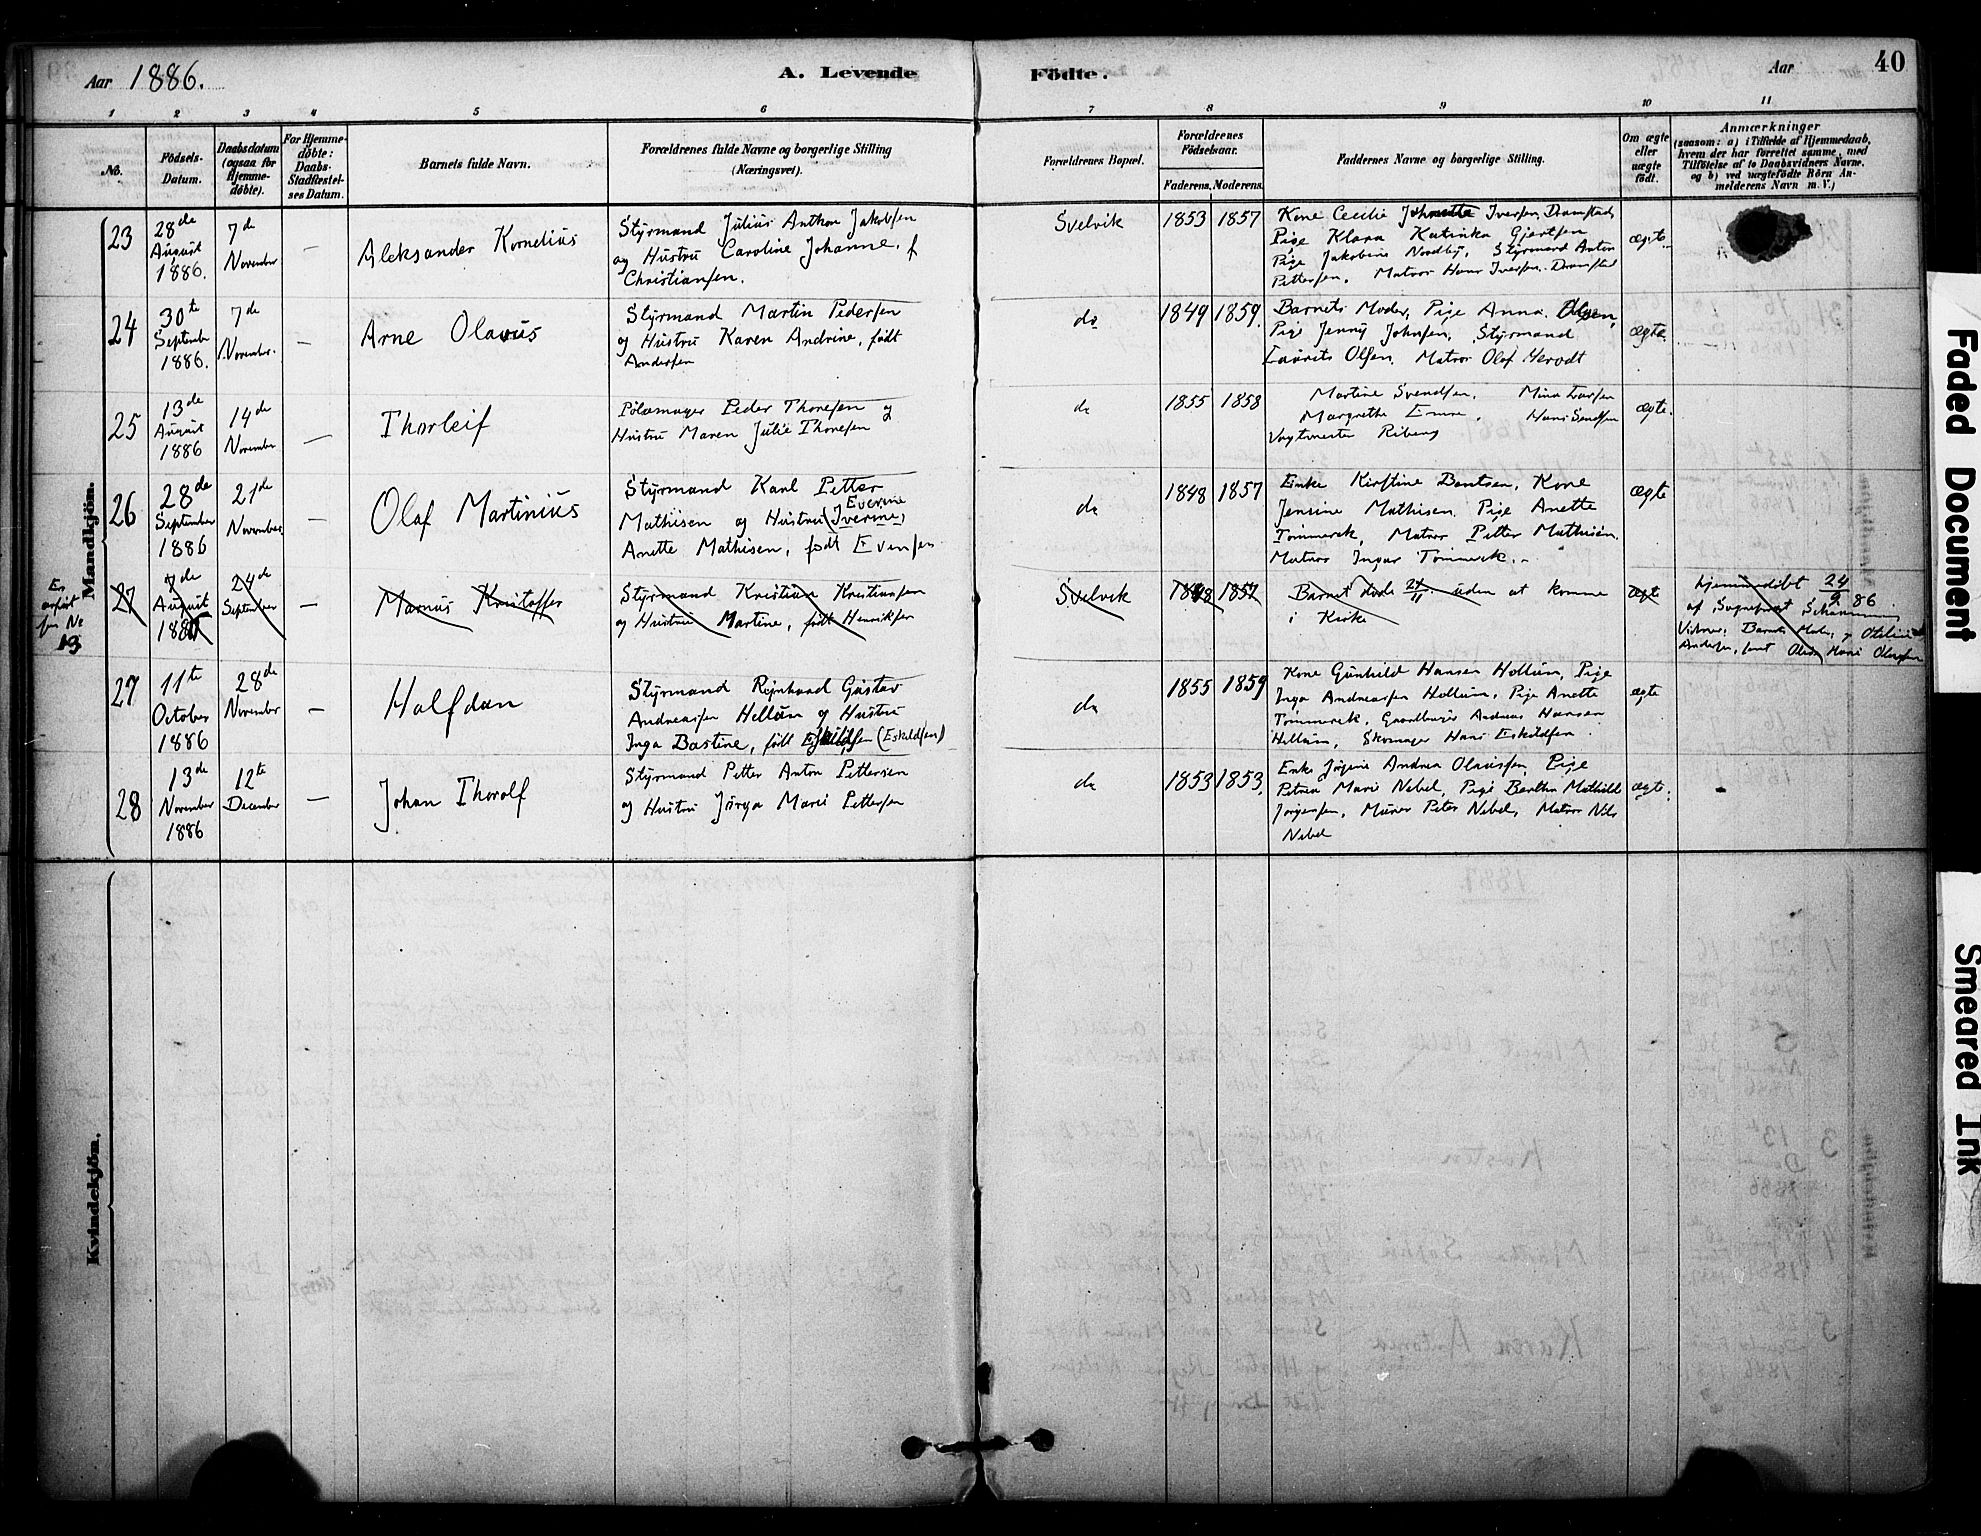 Aar 1886.
A. Levende
Födte.
Aar
40
1 2 3 4 5 6 7 8 9 10 11
No.
Födsels-
Datum.
Daabsdatum
(ogsaa for
Hjemme-
döbte).
For Hjemme-
döbte:
Daabs-
Stadfæstel-
ses Datum.
Barnets fulde Navn.
Forældrenes fulde Navne og borgerlige Stilling
(Næringsvei).
Forældrenes Bopæl.
Forældrenes
Födselsaar.
Faderens. Moderens.
Faddernes Navne og borgerlige Stilling.
Om ægte
eller
uægte
födt.
Anmærkninger
(saasom: a) i Tilfælde af Hjemmedaab,
hvem der har forrettet samme, med
Tilföielse af to Daabsvidners Navne,
og b) ved uægtefödte Börn An-
melderens Navn m. V.)
Mandkjön.
23
28de
August
1886.
7de
November
—
Aleksander Kornelius
Styrmand Julius Anthon Jakobsen
og Hustru Caroline Johanne, f
Christiansen.
Svelvik
1853 1857
Kone Cecilie Iversen Dramstad
Pige Klara Katinka Gjertsen
Pige Jakobine Nordby, Styrmand Anton
Pettersen, Matros Hans Iversen Dramstad
ægte
24
30te
September
1886.
7de
November.
—
Arne Olavus
Styrmand Martin Pedersen
og Hustru Karen Andrine, født
Andersen
do
1849 1859.
Barnets Moder, Pige Anna Olsen,
Pige Jenny Johnsen, Styrmand
Laurits Olsen, Matros Olaf
ægte.
25
13de
August
1886
14de
November
—
Thorleif
Pølsemager Peder Thoresen og
Hustru Maren Julie Thoresen
do
1855 1858
Martine Svendsen, Mina Larsen
Margrethe
Vagtmester Riberg
ægte.
26
28de
September
1886
21de
November
—
Olaf Martinius
Styrmand Karl Petter
Everine
Mathisen og Hustru (Iverine)
Anette Mathisen, født Evensen
do
1848 1857
Enke Kirstine Bentsen, Kone
Jensine Mathisen, Pige Anette
Tømmerek, Matros Petter Mathisen,
Matros Ingvar Tømmerek.
ægte
Er
anført
for No
13
27
7de
August
188
24de
September
—
Marius Kristoffer
Styrmand Kristian Kristiansen
og Hustru Martine, født Henriksen
Svelvik
1848 1857
Barnet døde 24/11 uden at komme
i Kirke
ægte
hjemmedøbt 24/9 86.
af Sogneprest
Vidner: Barnets Moder, og Otilie
Andersen, samt Hans Olausen
27
11te
October
1886
28de
November
—
Halfdan
Styrmand Reinhard Gustav
Andreassen Hellum og Hustru
Inga Bastine, født Eskildsen (Eskildsen)
do
1855 1859
Kone Gunhild Hansen Hollum, Pige
Inga Andreassen Hollum, Pige Anette
Tømmerek, Gaardbruger Andreas Hansen
Hellum, Skomager Hans Eskildsen.
ægte
28
13de
November
1886
12te
December
—
Johan Thorolf
Styrmand Petter Anton Pettersen
og Hustru Jørga Marie Pettersen
do
1853 1853.
Enke Jørgine Andrea Olaussen, Pige
Petrea Marie Nebel, Pige Berthe Mathilde
Jørgensen, Murer Peter Nebel, Matros Nils
Nebel
ægte.
Kvindekjön.
Faded Document
Smeared Ink